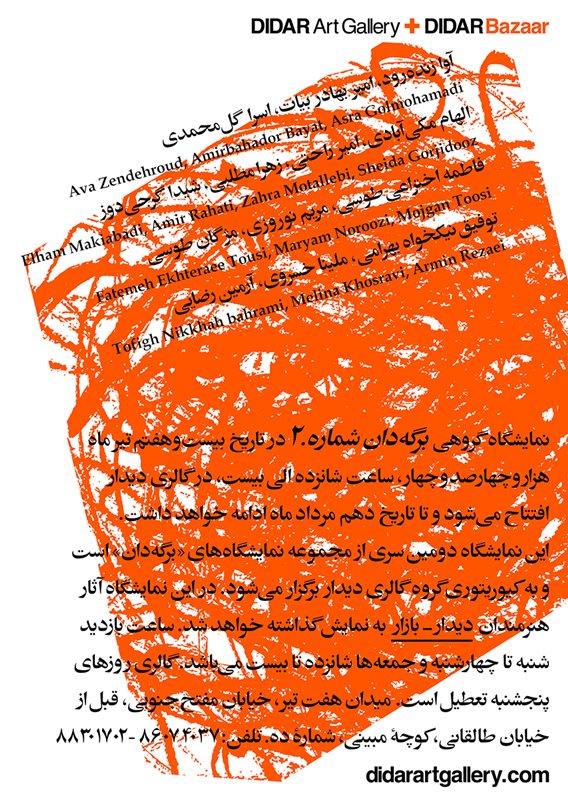 DIDAR Art Gallery + DIDAR Bazaar
آوا زنده‌رود، امیر بهادر بیات، اسرا گل‌محمدی
Ava Zendehroud, Amirbahador Bayat, Asra Golmohamadi
الهام مکی‌آبادی، امیر راحتی، زهرا مطلبی، شیدا گرجی دوز
Elham Makiabadi, Amir Rahati, Zahra Motallebi, Sheida Gorjidooz
فاطمه اختراعی طوسی، مریم نوروزی، مژگان طوسی
Fatemeh Ekhteraee Tousi, Maryam Noroozi, Mojgan Toosi
توفیق نیکخواه بهرامی، ملینا خسروی، آرمین رضایی
Tofigh Nikkhah bahrami, Melina Khosravi, Armin Rezaei
نمایشگاه گروهی برگه‌دان شماره.۲ در تاریخ بیست‌وهفتم تیر ماه
هزاروچهارصدوچهار، ساعت شانزده الی بیست، در گالری دیدار
افتتاح می‌شود و تا تاریخ دهم مرداد ماه ادامه خواهد داشت.
این نمایشگاه دومین سری از مجموعه نمایشگاه‌های «برگه‌دان» است
و به کیوریتوری گروه گالری دیدار برگزار می‌شود. در این نمایشگاه آثار
هنرمندان دیدار-بازار به نمایش گذاشته خواهد شد. ساعت بازدید
شنبه تا چهارشنبه و جمعه‌ها شانزده تا بیست می‌باشد. گالری روزهای
پنجشنبه تعطیل است. میدان هفت تیر، خیابان مفتح جنوبی، قبل از
خیابان طالقانی، کوچهٔ مبینی، شمارهٔ ده. تلفن: ۸۶۰۷۴۰۳۷ - ۸۸۳۰۱۷۰۲
didarartgallery.com